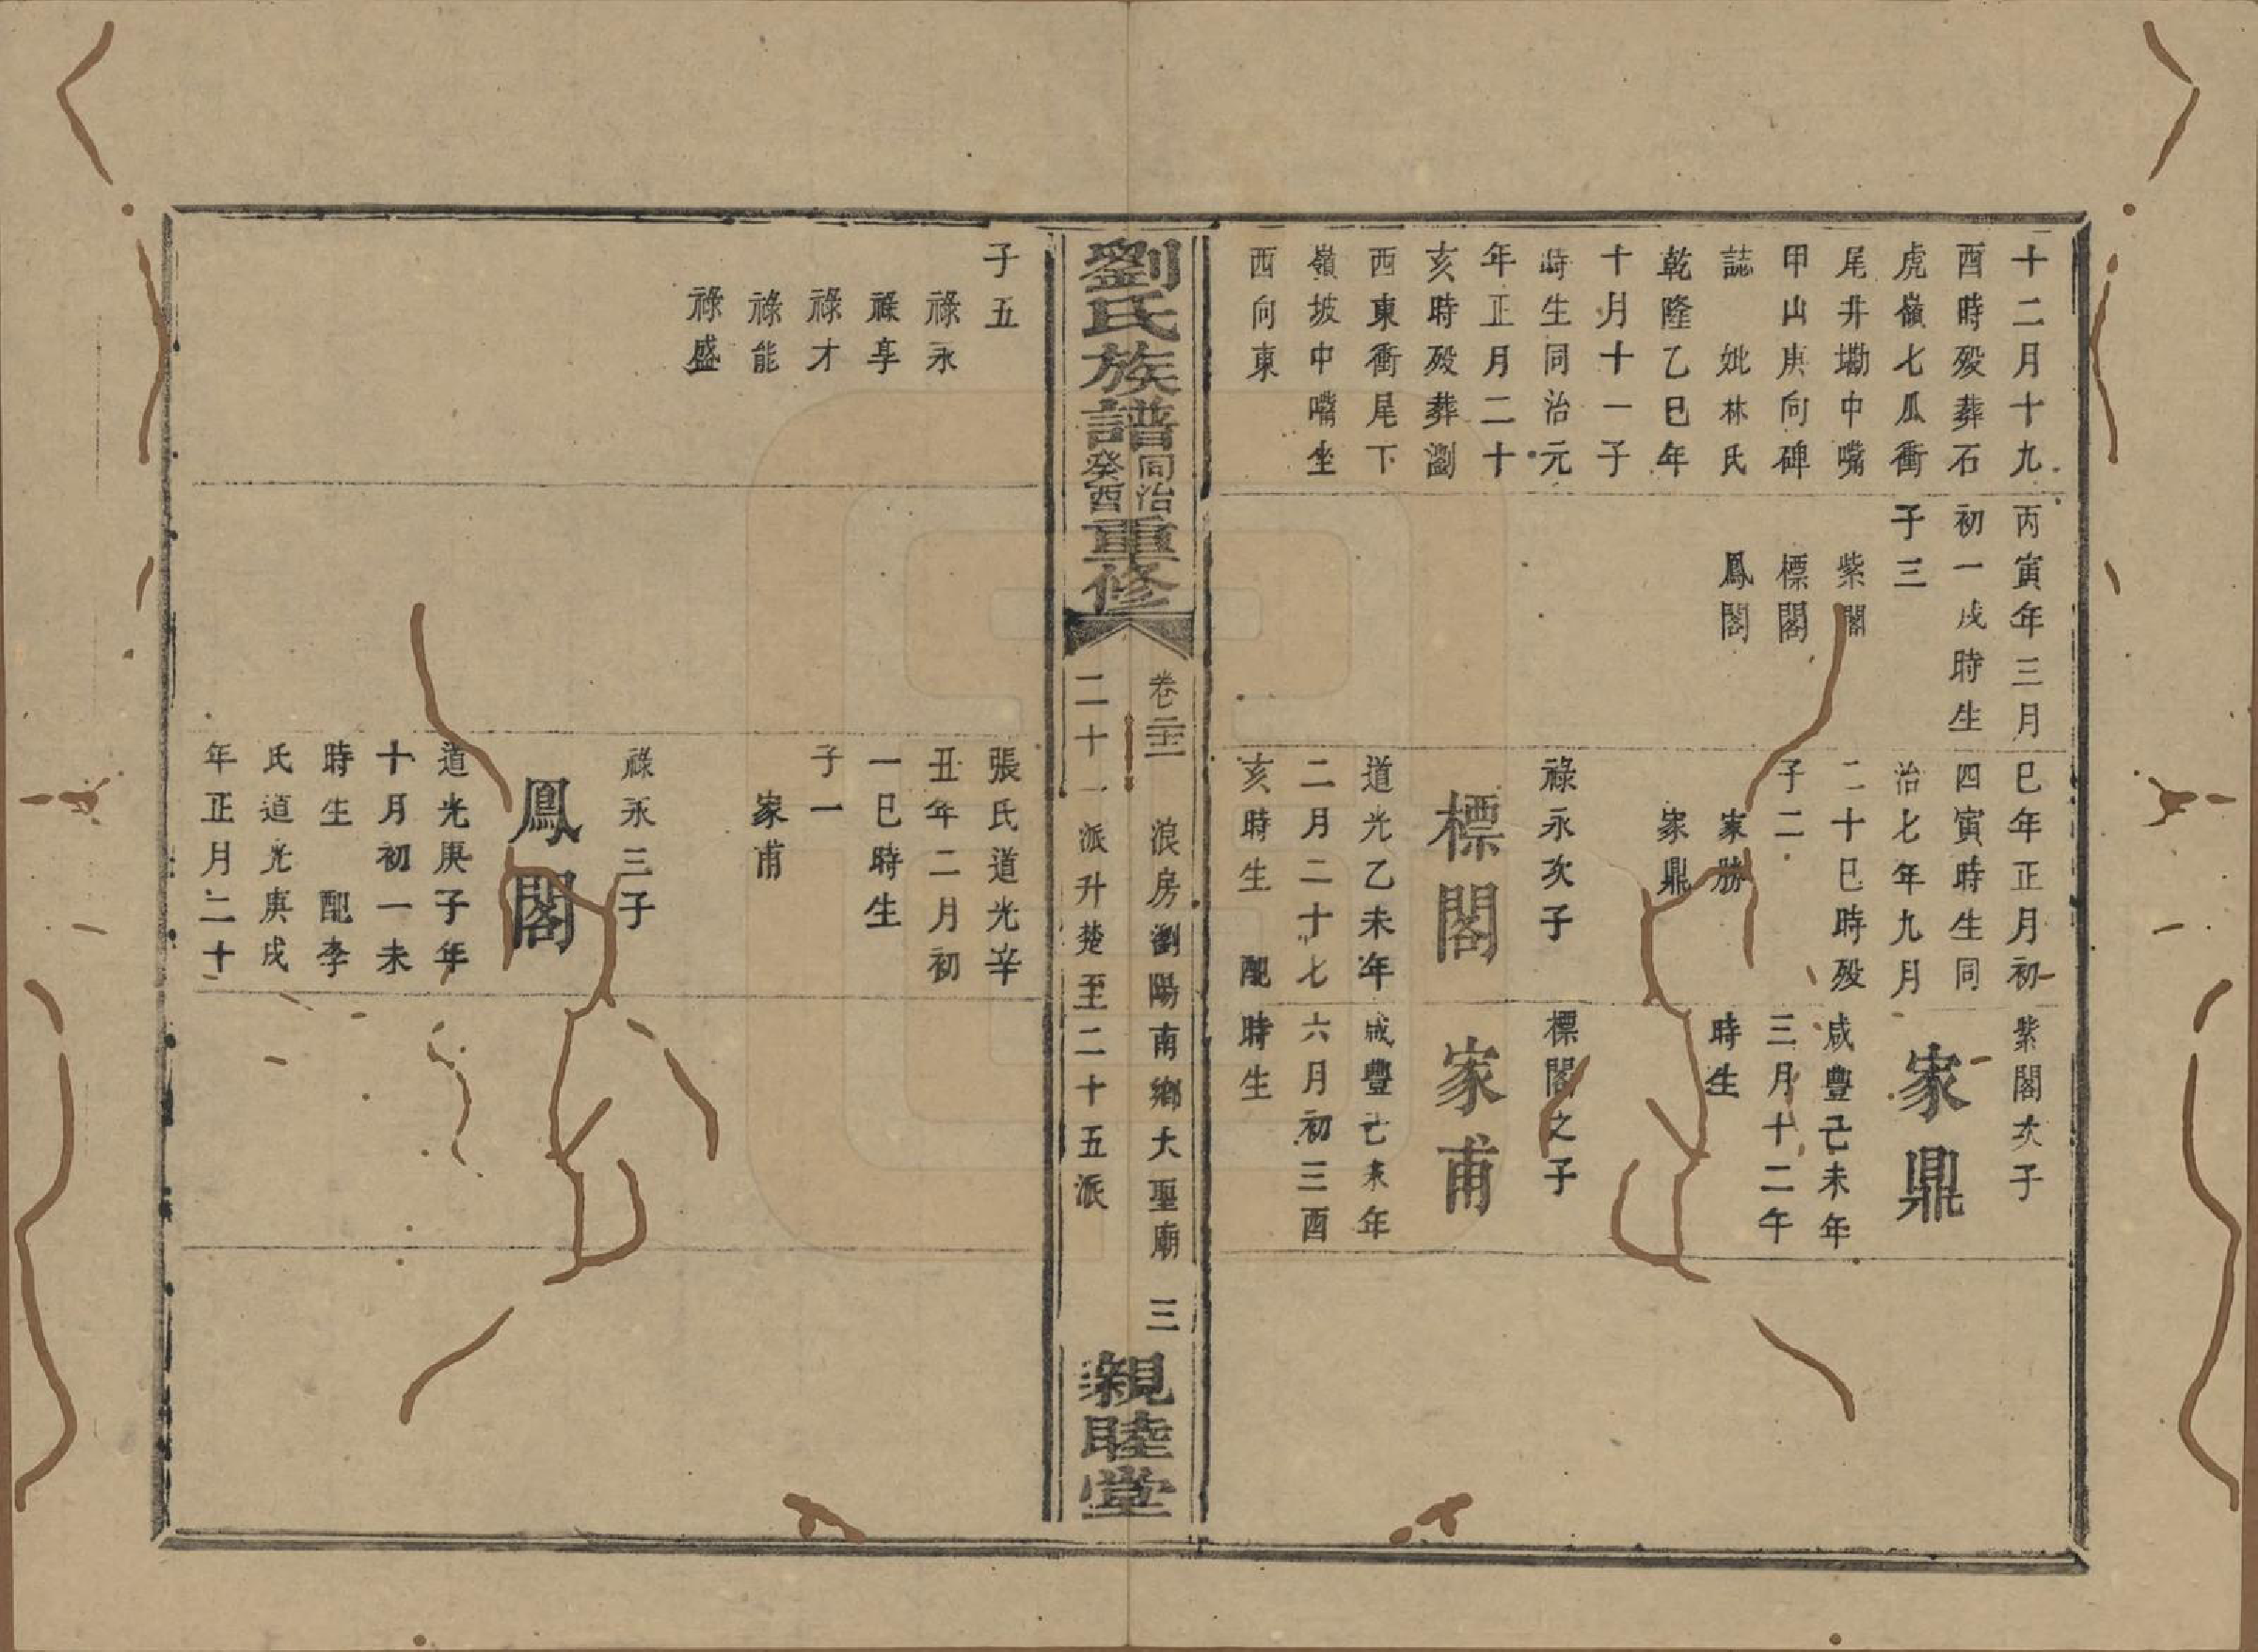 十二月十九
酉時歿葬石
虎嶺七瓜衝
尾井墈中嘴
甲山庚向碑
誌　妣林氏
乾隆乙巳年
十月十一子
時生同治元
年正月二十
亥時歿葬瀏
西東衝尾下
嶺坡中嘴坐
西向東
丙寅年三月
初一戌時生
子三
紫閣
標閣
鳳閣
巳年正月初
四寅時生同
治七年九月
二十巳時歿
子二
家勝
家鼎
祿永次子
標閣
道光乙未年
二月二十七
亥時生　配
紫閣次子
家鼎
咸豐己未年
三月十二午
時生
標閣之子
家甫
咸豐己未年
六月初三酉
時生
劉氏族譜同治癸酉重修
卷二十二　浪房瀏陽南鄉大聖廟　三
二十一派升楚至二十五派
親睦堂
子五
祿永
祿享
祿才
祿能
祿盛
張氏道光辛
丑年二月初
一巳時生
子一
家甫
祿永三子
鳳閣
道光庚子年
十月初一未
時生　配李
氏道光庚戌
年正月二十